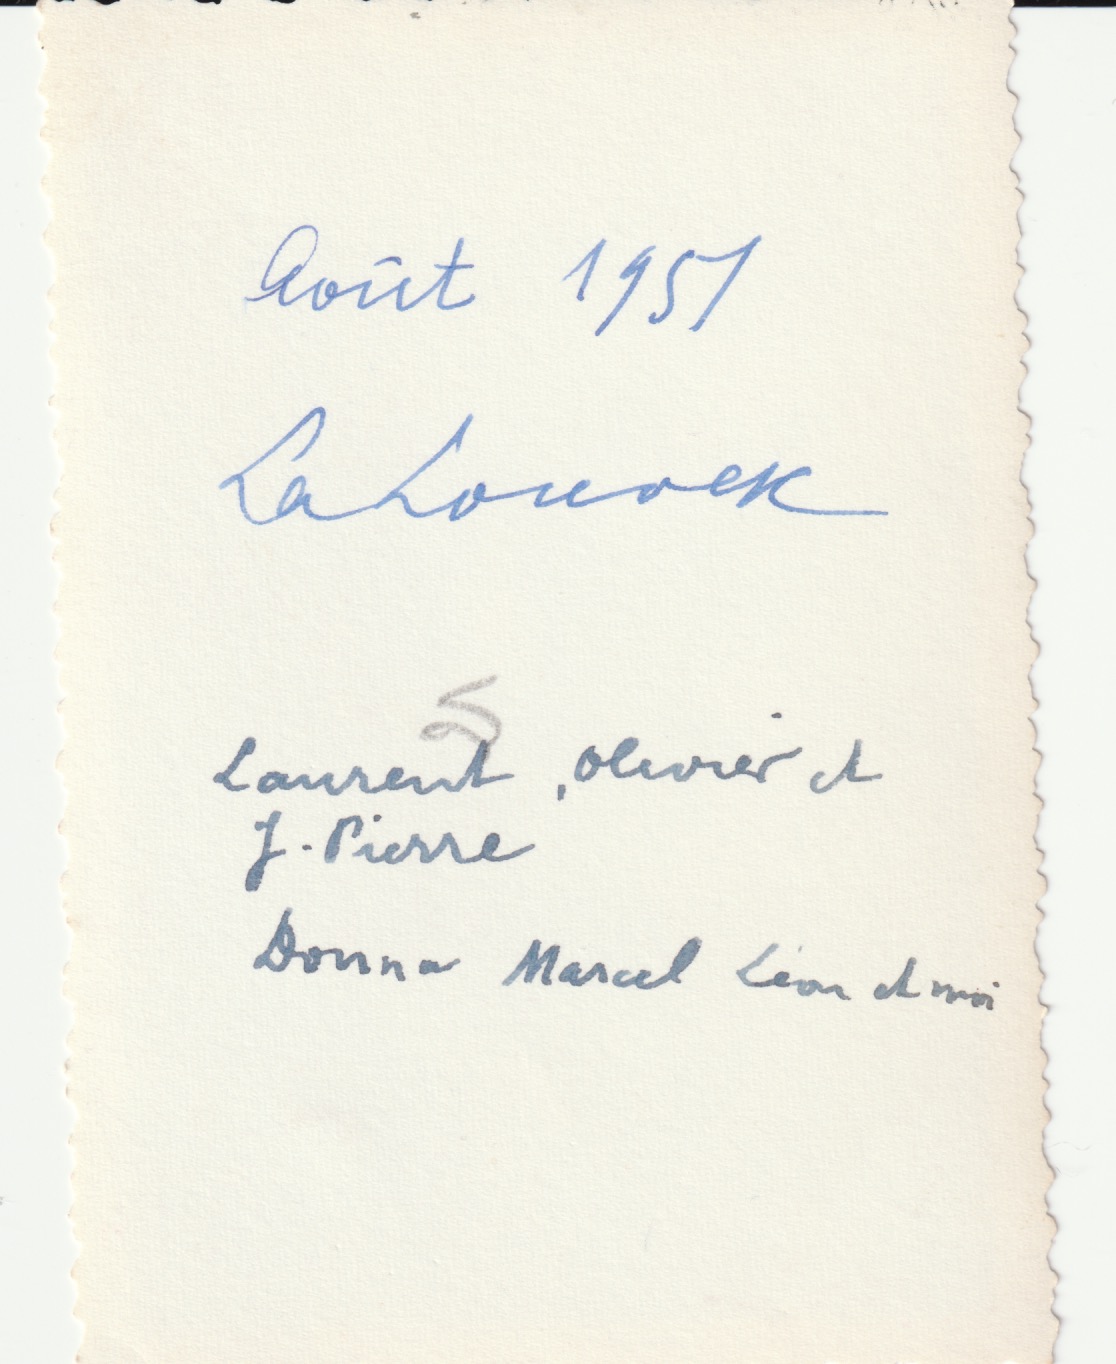 Août 1951
La Louvek
Laurent, Olivier et
J-Pierre
Donna Marcel Léon et moi